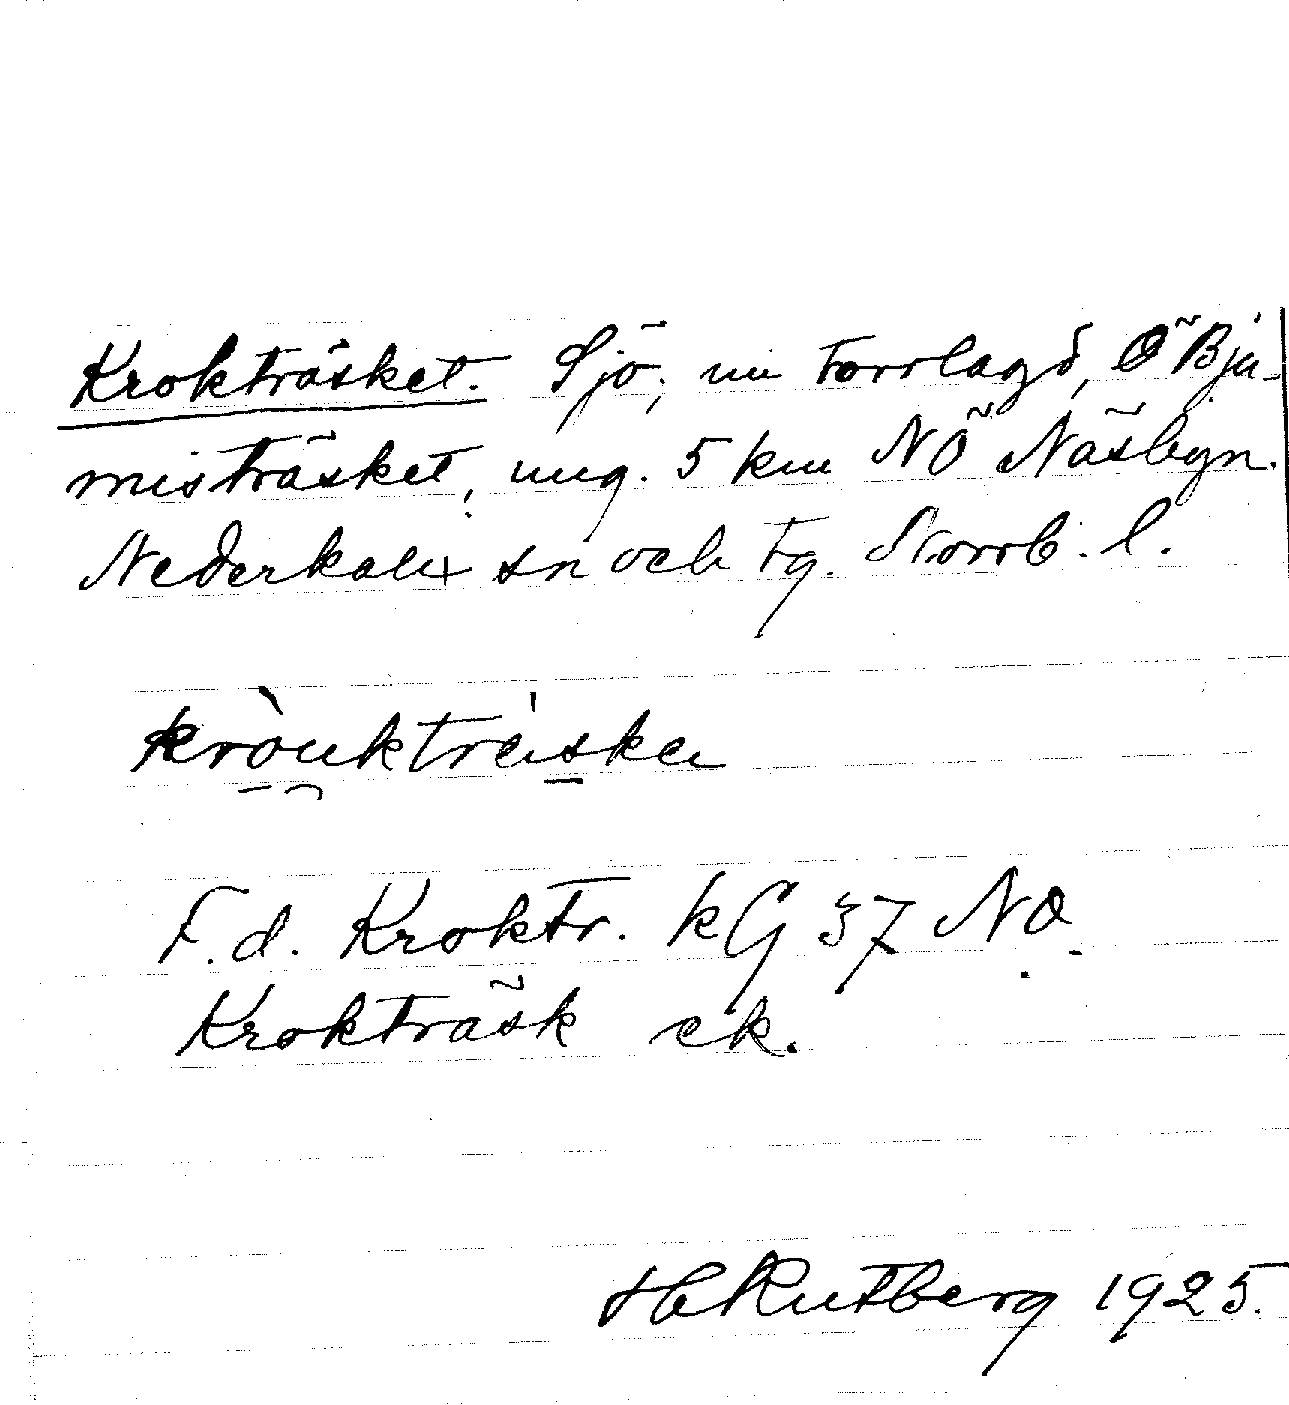 Krokträsket. Sjö, nu torrlagd, Ö Bju-
misträsket, ung. 5 km NÖ Näsbyn.
Nederkalix sn och tg. Norrb. l.
kròuktrǻska
F.d. Kroktr. kG 37 NO.
Krokträsk ek.
H Rutberg 1925.